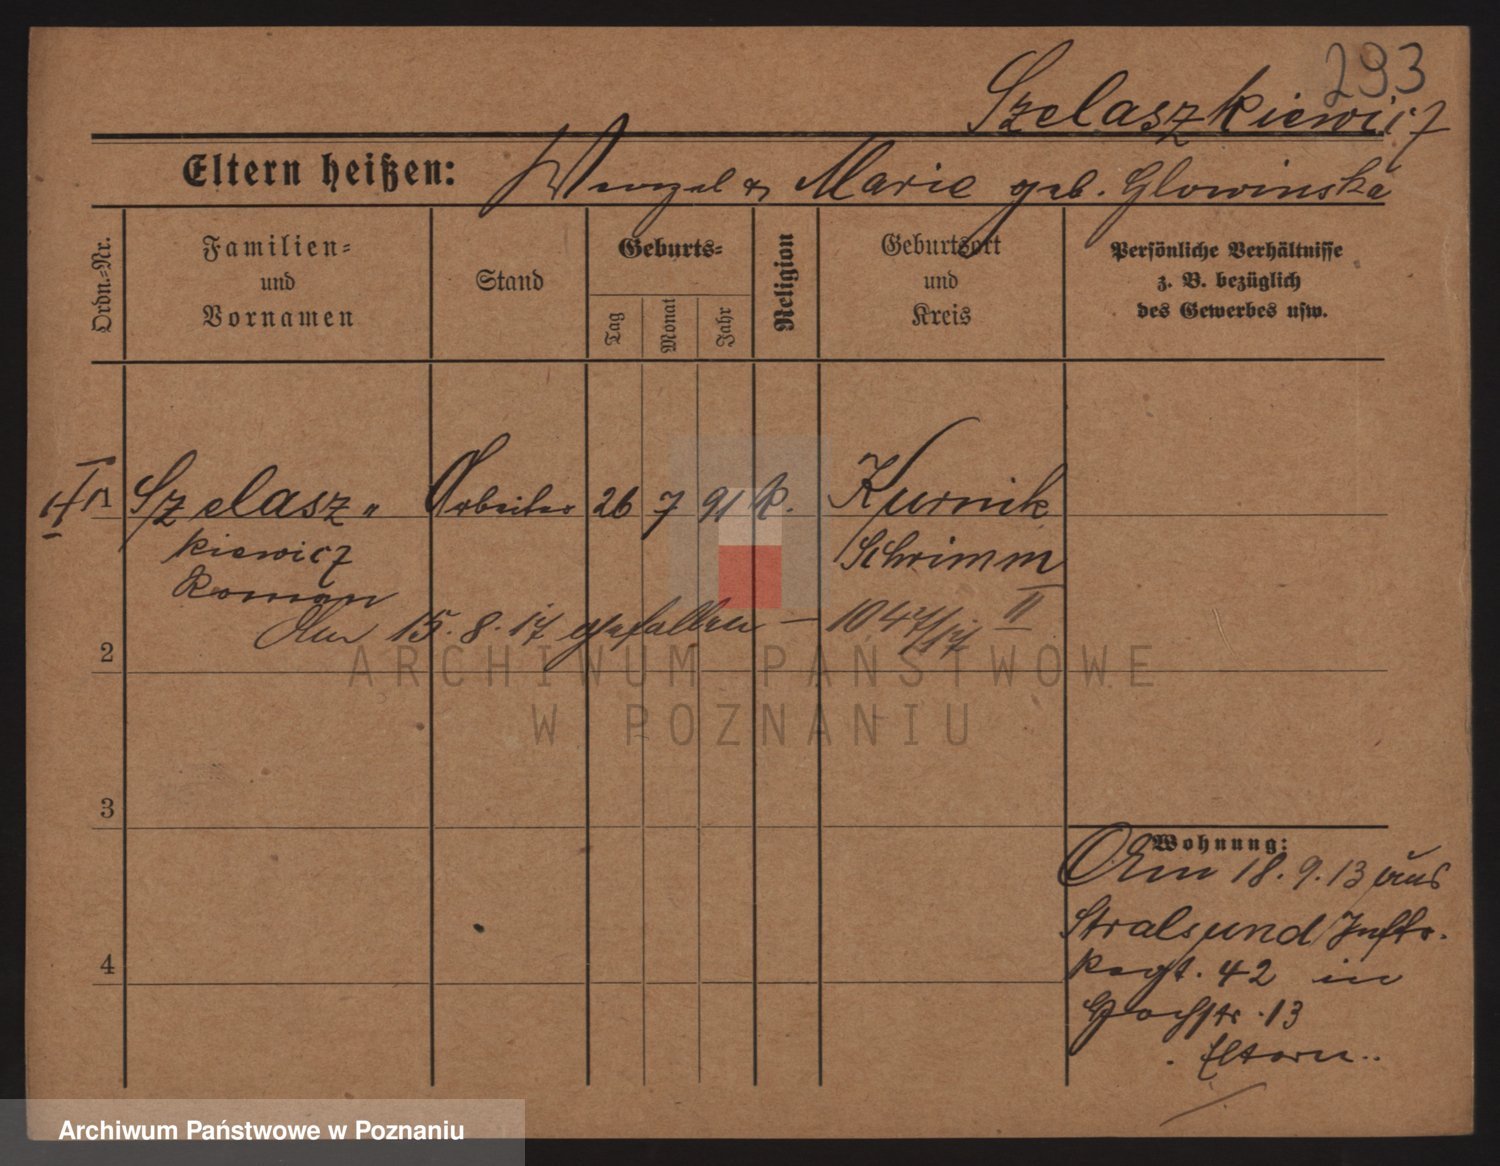 293
Szelaszkiewicz
Eltern heißen: Wenzel & Marie geb. Glowinska
Ordn.-Nr.
Familien- und Vornamen
Stand
Geburts-
Tag
Monat
Jahr
Religion
Geburtsort und Kreis
Persönliche Verhältnisse
z. B. bezüglich
des Gewerbes usw.
1 Szelasz„ Arbeiter 26 7 91 k. Kurnik
kiewicz Schrimm
Roman
Am 15.8.17 gefallen – 1047/17 II
2
3
4
Wohnung:
Am 18.9.13 aus
Stralsund Inftr.
Regt. 42 in
Hochstr. 13
Eltern..
ARCHIWUM PAŃSTWOWE
W POZNANIU
Archiwum Państwowe w Poznaniu